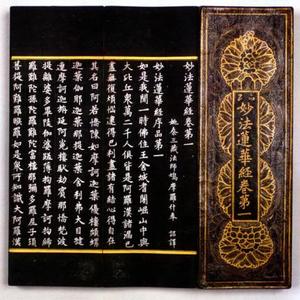 妙法蓮華經卷第一
妙法蓮華經卷第一
姚秦三藏法師鳩摩羅什奉 詔譯
妙法蓮華經序品第一
如是我聞一時佛住王舍城耆闍崛山中與
大比丘衆萬二千人俱皆是阿羅漢諸漏已
盡無復煩惱逮得己利盡諸有結心得自在
其名曰阿若憍陳如摩訶迦葉優樓頻螺
迦葉伽耶迦葉那提迦葉舍利弗大目揵
連摩訶迦旃延阿㝹樓馱劫賓那憍梵波
提離婆多畢陵伽婆蹉薄拘羅摩訶拘絺
羅難陀孫陀羅難陀富樓那彌多羅尼子須
菩提阿難羅睺羅如是衆所知識大阿羅漢